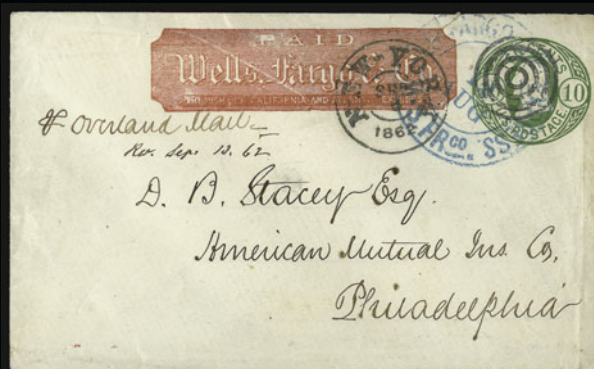 PAID
Wells, Fargo & Co.
NEW-YORK
SEP
1862
FARGO
AUG
SS
CENTS
10
U.S. POSTAGE
pr Overland Mail
Rec. Sepr. 13. 62
D. B. Stacey Esq.
American Mutual Ins. Co,
Philadelphia